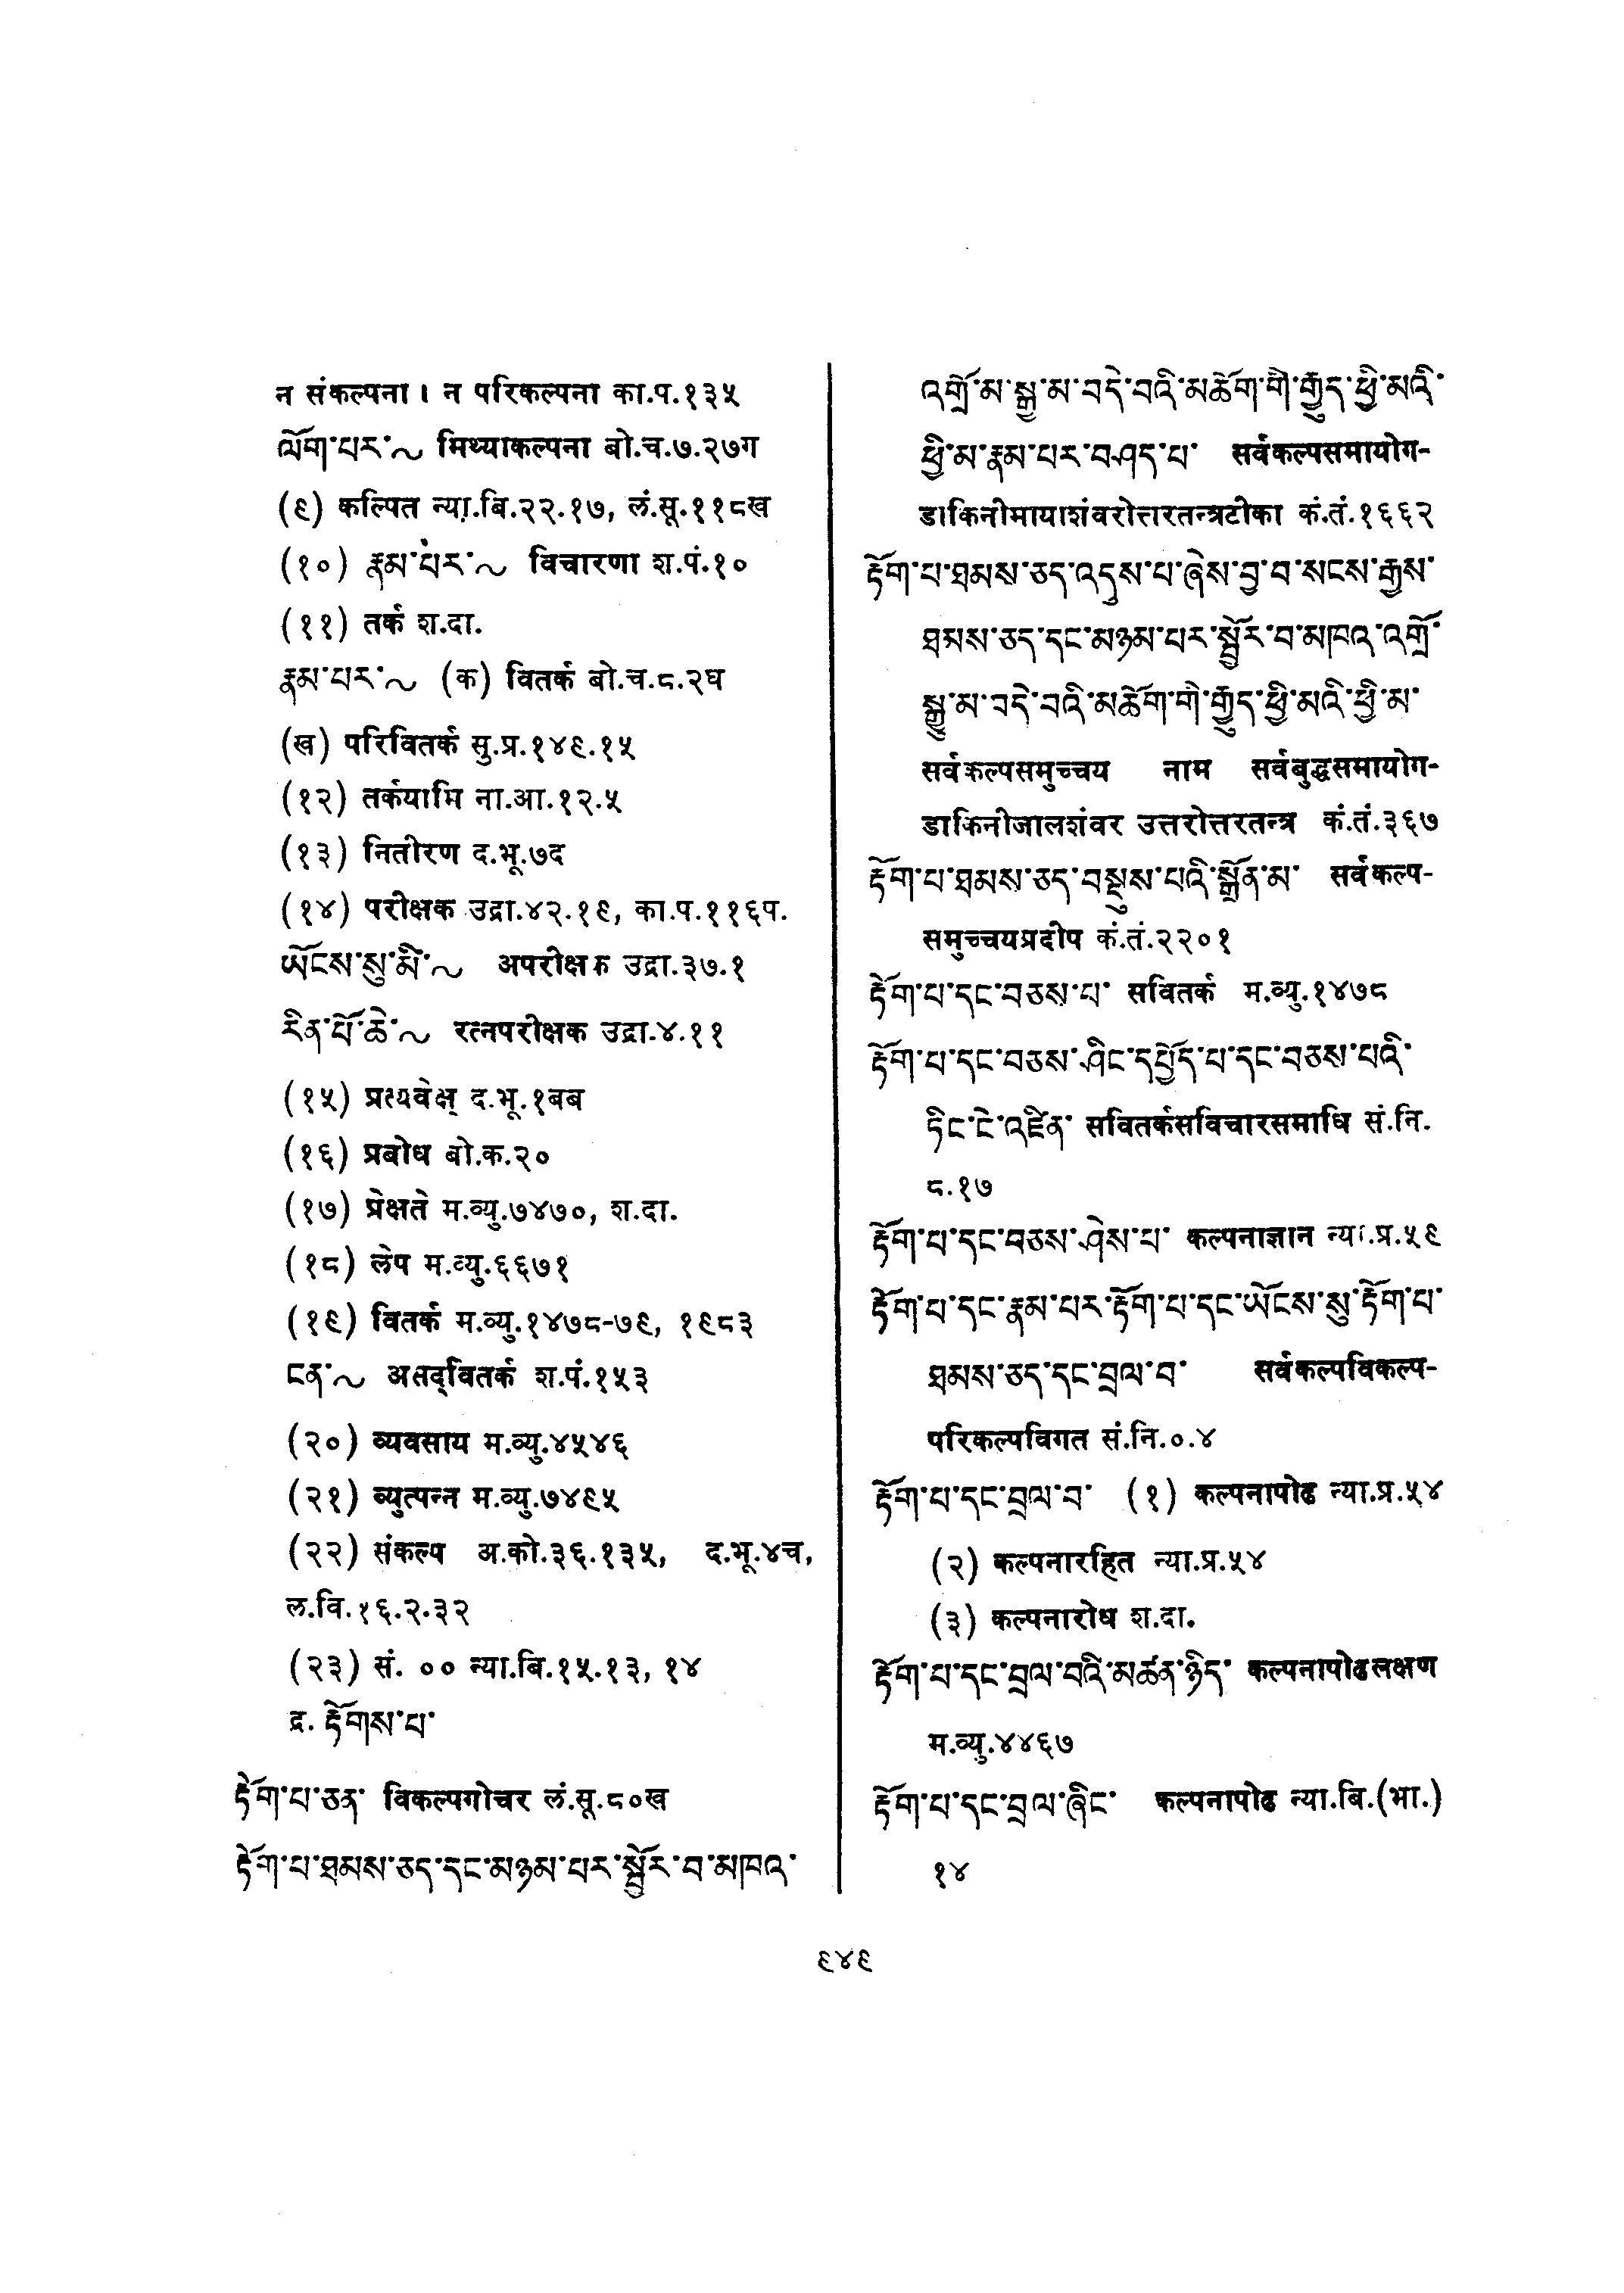 न संकल्पना। न परिकल्पना का.प.१३५
ལོག་པར་～ मिथ्याकल्पना बो.च.७.२७ग
(९) कल्पित न्या.बि.२२.१७, लं.सू.११८ख
(१०) རྣམ་པར་～ विचारणा श.पं.१०
(११) तर्क श.दा.
རྣམ་པར་～ (क) वितर्क बो.च.८.२घ
(ख) परिवितर्क सु.प्र.१४९.१५
(१२) तर्कयामि ना.आ.१२.५
(१३) नितीरण द.भू.७द
(१४) परीक्षक उद्रा.४२.१९, का.प.११६प.
ཡོངས་སུ་མི་～ अपरीक्षक उद्रा.३७.१
རིན་པོ་ཆེ་～ रत्नपरीक्षक उद्रा.४.११
(१५) प्रत्यवेक्ष् द.भू.१बब
(१६) प्रबोध बो.क.२०
(१७) प्रेक्षते म.व्यु.७४७०, श.दा.
(१८) लेप म.व्यु.६६७१
(१९) वितर्क म.व्यु.१४७८-७९, १९८३
ངན་～ असद्वितर्क श.पं.१५३
(२०) व्यवसाय म.व्यु.४५४६
(२१) व्युत्पन्न म.व्यु.७४९५
(२२) संकल्प अ.को.३६.१३५, द.भू.४च,
ल.वि.१६.२.३२
(२३) सं. ०० न्या.बि.१५.१३, १४
द्र. རྟོགས་པ་
རྟོག་པ་ཅན་ विकल्पगोचर लं.सू.८०ख
རྟོག་པ་ཐམས་ཅད་དང་མཉམ་པར་སྦྱོར་བ་མཁའ་
འགྲོ་མ་སྒྱུ་མ་བདེ་བའི་མཆོག་གི་རྒྱུད་ཕྱི་མའི་
ཕྱི་མ་རྣམ་པར་བཤད་པ་ सर्वकल्पसमायोग-
डाकिनीमायाशंवरोत्तरतन्त्रटीका कं.तं.१६६२
རྟོག་པ་ཐམས་ཅད་འདུས་པ་ཞེས་བྱ་བ་སངས་རྒྱས་
ཐམས་ཅད་དང་མཉམ་པར་སྦྱོར་བ་མཁའ་འགྲོ་
སྒྱུ་མ་བདེ་བའི་མཆོག་གི་རྒྱུད་ཕྱི་མའི་ཕྱི་མ་
सर्वकल्पसमुच्चय नाम सर्वबुद्धसमायोग-
डाकिनीजालशंवर उत्तरोत्तरतन्त्र कं.तं.३६७
རྟོག་པ་ཐམས་ཅད་བསྡུས་པའི་སྒྲོན་མ་ सर्वकल्प-
समुच्चयप्रदीप कं.तं.२२०१
རྟོག་པ་དང་བཅས་པ་ सवितर्क म.व्यु.१४७८
རྟོག་པ་དང་བཅས་ཤིང་དཔྱོད་པ་དང་བཅས་པའི་
ཏིང་ངེ་འཛིན་ सवितर्कसविचारसमाधि सं.नि.
८.१७
རྟོག་པ་དང་བཅས་ཤེས་པ་ कल्पनाज्ञान न्या.प्र.५९
རྟོག་པ་དང་རྣམ་པར་རྟོག་པ་དང་ཡོངས་སུ་རྟོག་པ་
ཐམས་ཅད་དང་བྲལ་བ་ सर्वकल्पविकल्प-
परिकल्पविगत सं.नि.०.४
རྟོག་པ་དང་བྲལ་བ་ (१) कल्पनापोढ न्या.प्र.५४
(२) कल्पनारहित न्या.प्र.५४
(३) कल्पनारोध श.दा.
རྟོག་པ་དང་བྲལ་བའི་མཚན་ཉིད་ कल्पनापोढलक्षण
म.व्यु.४४६७
རྟོག་པ་དང་བྲལ་ཞིང་ कल्पनापोढ न्या.बि.(भा.)
१४
९४९